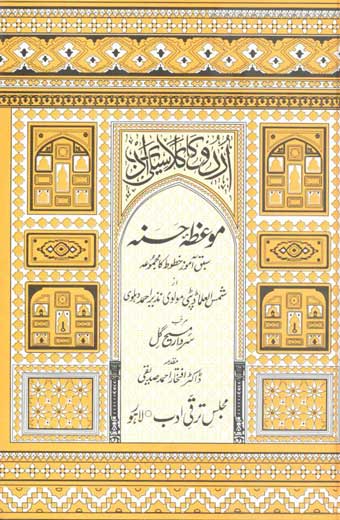 اردو کا کلاسیکی ادب
موعظۂ حسنہ
سبق آموز خطوط کا مجموعہ
از
شمس العلما ڈپٹی مولوی نذیر احمد دہلوی
مرتب
سردار مسیح گل
مقدمہ
ڈاکٹر افتخار احمد صدیقی
مجلس ترقی ادب ○ لاہور